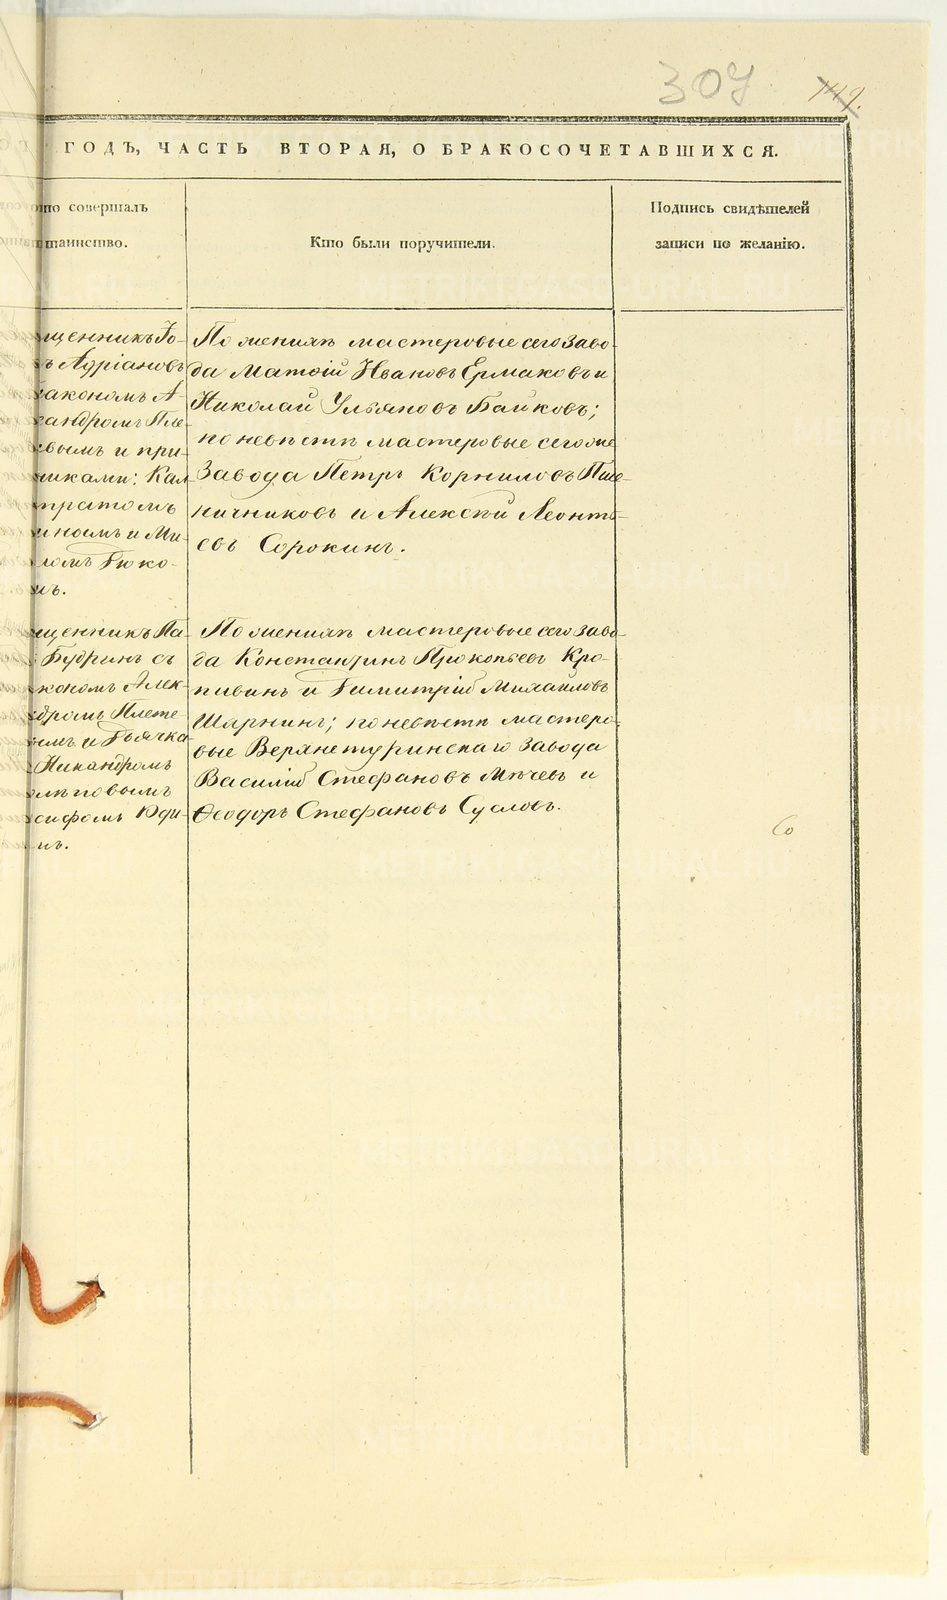 307 142.
ГОДЪ, ЧАСТЬ ВТОРАЯ, О БРАКОСОЧЕТАВШИХСЯ.
то совершалъ
таинство.
Кто были поручители.
Подпись свидѣтелей
записи по желанію.
щенникъ Іо-
ъ Адріановъ
іакономъ А-
сандромъ Пле-
евымъ и при-
никами: Кал-
тратомъ
иномъ и Ми-
ломъ Дюко-
ъ.
По женихѣ мастеровые сего заво-
да Матѳій Ивановъ Ермаковъ и
Николай Ульяновъ Байковъ;
по невѣстѣ мастеровые сего же
завода Петръ Корниловъ Пше-
ничниковъ и Алексѣй Леонть-
евъ Сорокинъ.
щенникъ Па-
Будринъ съ
кономъ Алек-
дромъ Плете-
мъ и Дьячка
Никандромъ
повымъ
сифомъ Юди-
ъ.
По женихѣ мастеровые сего заво-
да Константинъ Прокопьевъ Кро-
пивинъ и Димитрій Михайловъ
Шарнинъ; по невѣстѣ мастеро-
вые Верхнетуринскаго завода
Василій Стефановъ Мячевъ и
Ѳеодоръ Стефановъ Сусловъ.
METRIKI.GASO-URAL.RU